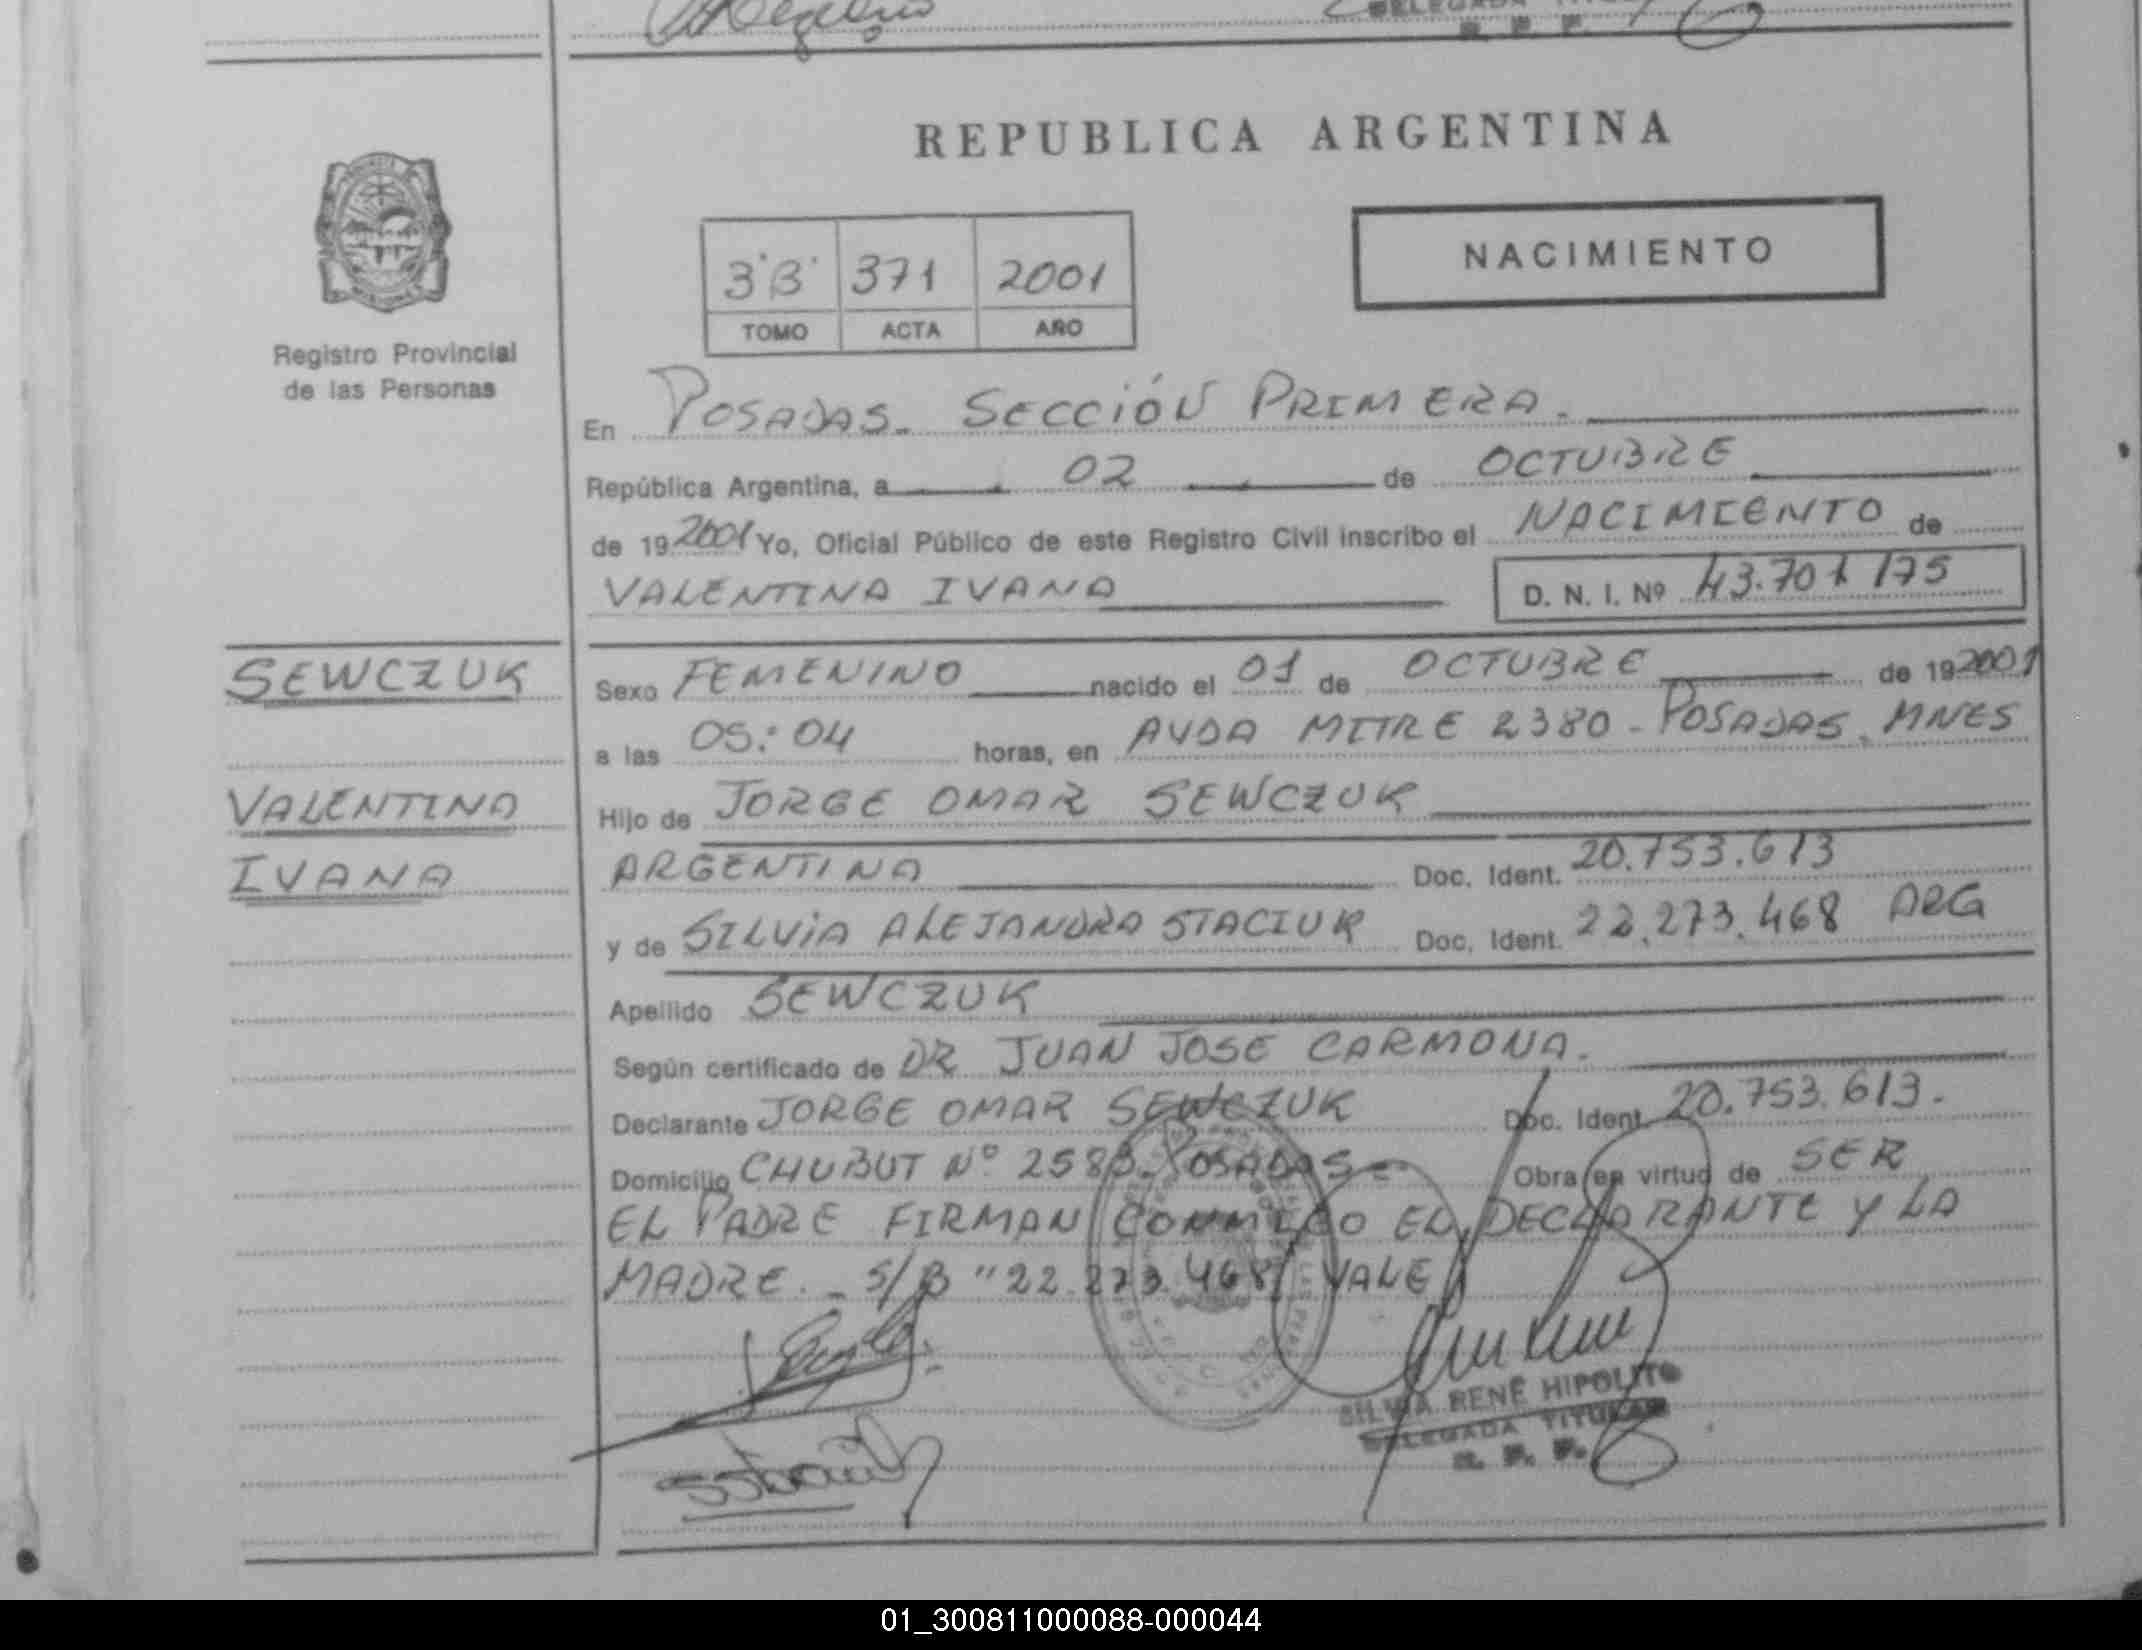 REPUBLICA ARGENTINA
NACIMIENTO
3 "B" 371 2001
TOMO ACTA AÑO
Registro Provincial
de las Personas
En POSADAS. SECCIÓN PRIMERA.
República Argentina, a 02 de OCTUBRE
de 19 2001 Yo, Oficial Público de este Registro Civil inscribo el NACIMIENTO de
VALENTINA IVANA D. N. I. Nº 43.701 175
SEWCZUK
VALENTINA
IVANA
Sexo FEMENINO nacido el 01 de OCTUBRE de 19 2001
a las 05:04 horas, en AVDA MITRE 2380 - POSADAS. MNES
Hijo de JORGE OMAR SEWCZUK
ARGENTINA Doc. Ident. 20.753.613
y de SILVIA ALEJANDRA STACIUK Doc. Ident. 22.273.468 ARG
Apellido SEWCZUK
Según certificado de DR JUAN JOSE CARMONA.
Declarante JORGE OMAR SEWCZUK Doc. Ident. 20.753.613.
Domicilio CHUBUT Nº 258 POSADAS = Obra en virtud de SER
EL PADRE FIRMAN CONMIGO EL DECLARANTE Y LA
MADRE. - S/B "22.273.468" VALE
SILVIA RENÉ HIPOLITO
DELEGADA TITULAR
R. P. P.
01_300811000088-000044